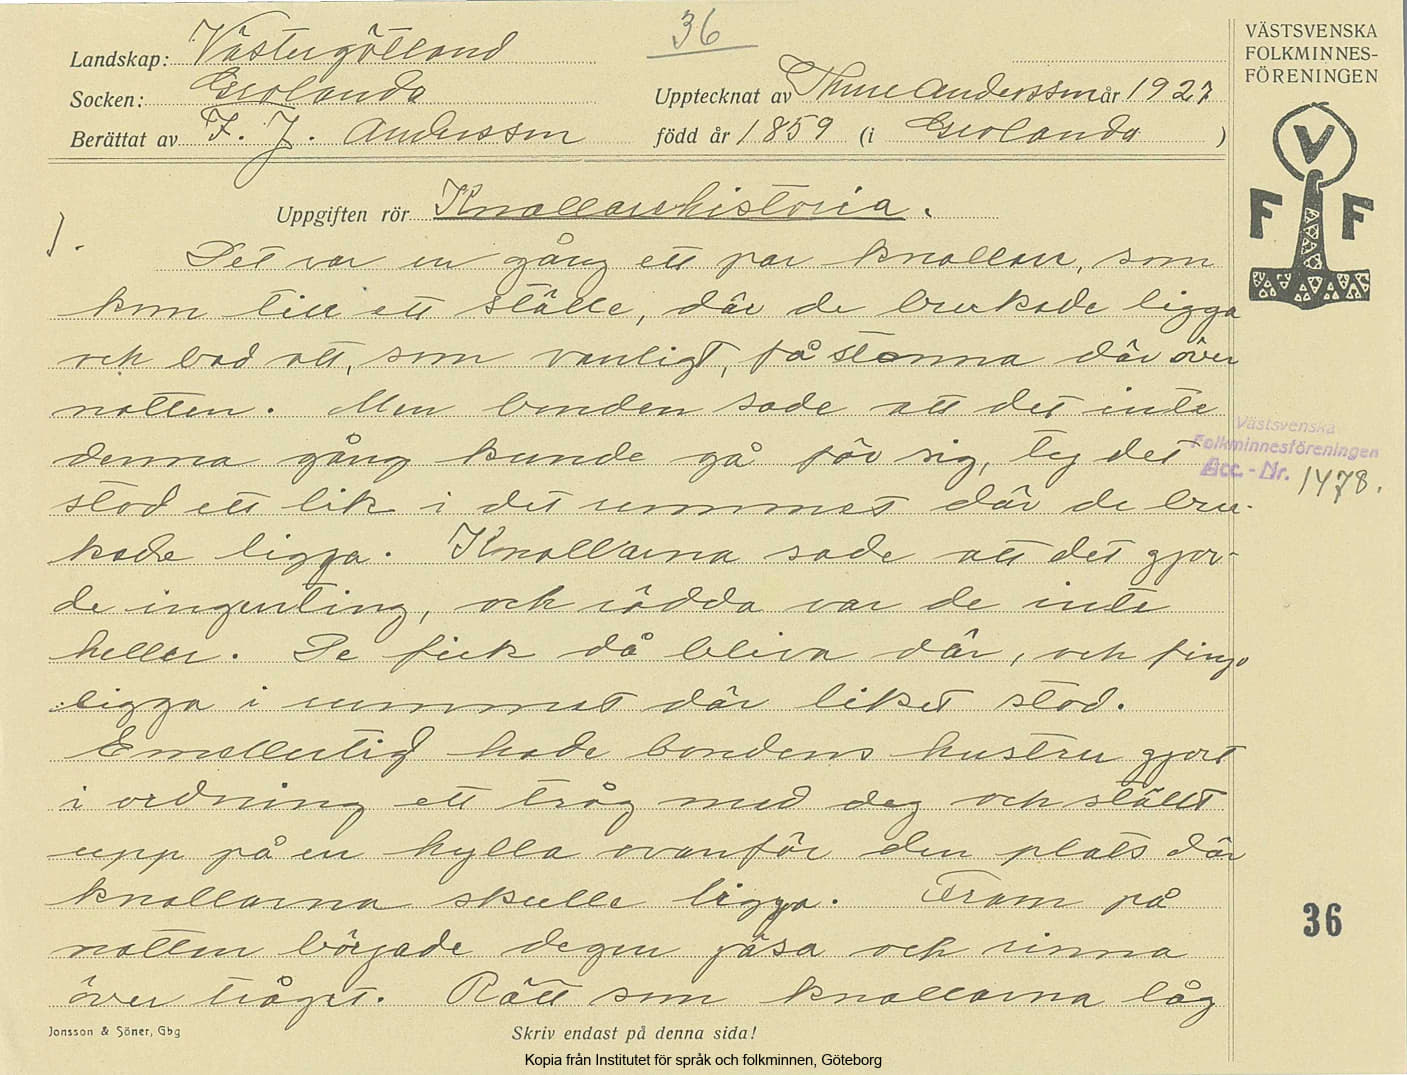 36
Landskap: Västergötland
Socken: Grolanda
Upptecknat av Thure Andersson år 1927
Berättat av F. J. Andersson född år 1859 (i Grolanda)
VÄSTSVENSKA
FOLKMINNES-
FÖRENINGEN
V
F F
Uppgiften rör Knallarehistoria.
1.
Det var en gång ett par knallar, som
kom till ett ställe, där de brukade ligga
och bad att, som vanligt, få stanna där över
natten. Men bonden sade att det inte
denna gång kunde gå för sig, ty det
stod ett lik i det rummet där de bru-
kade ligga. Knallarna sade att det gjor-
de ingenting, och rädda var de inte
heller. De fick då bliva där, och fingo
ligga i rummet där liket stod.
Emellertid hade bondens hustru gjort
i ordning ett tråg med deg och ställt
upp på en hylla ovanför den plats där
knallarna skulle ligga. Fram på
natten började degen jäsa och rinna
över tråget. Rätt som knallarna låg
Västsvenska
Folkminnesföreningen
Acc.-Nr. 1478.
36
Jonsson & Söner, Gbg
Skriv endast på denna sida!
Kopia från Institutet för språk och folkminnen, Göteborg